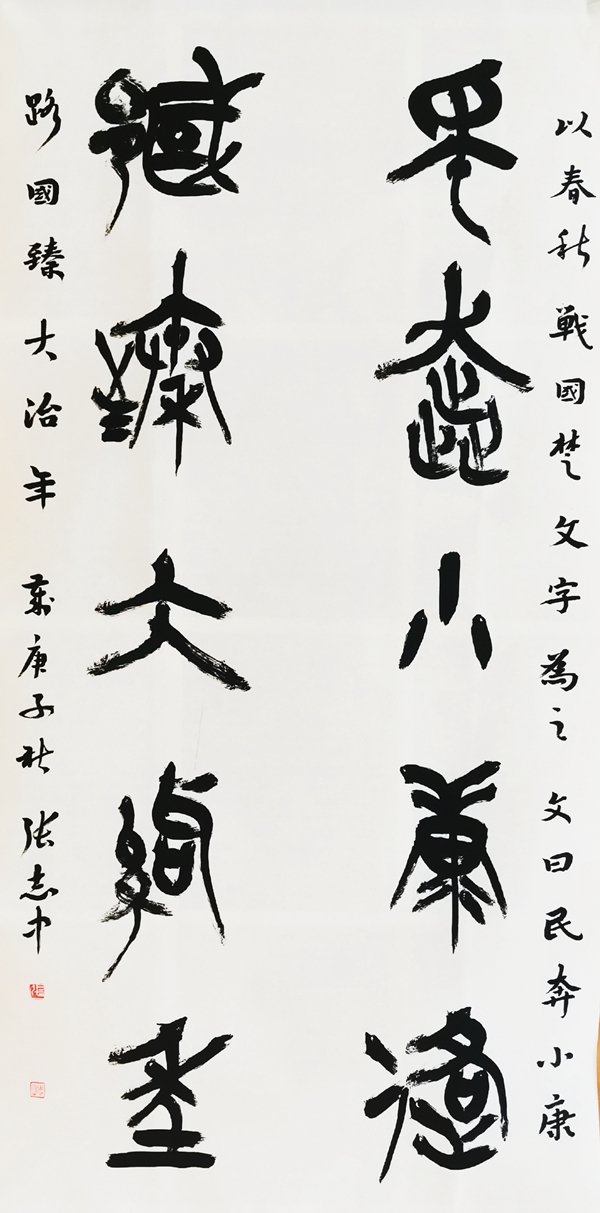 以春秋戰國楚文字為之 文曰民奔小康
民奔小康路
國臻大治年
路國臻大治年 歲庚子秋 張志中